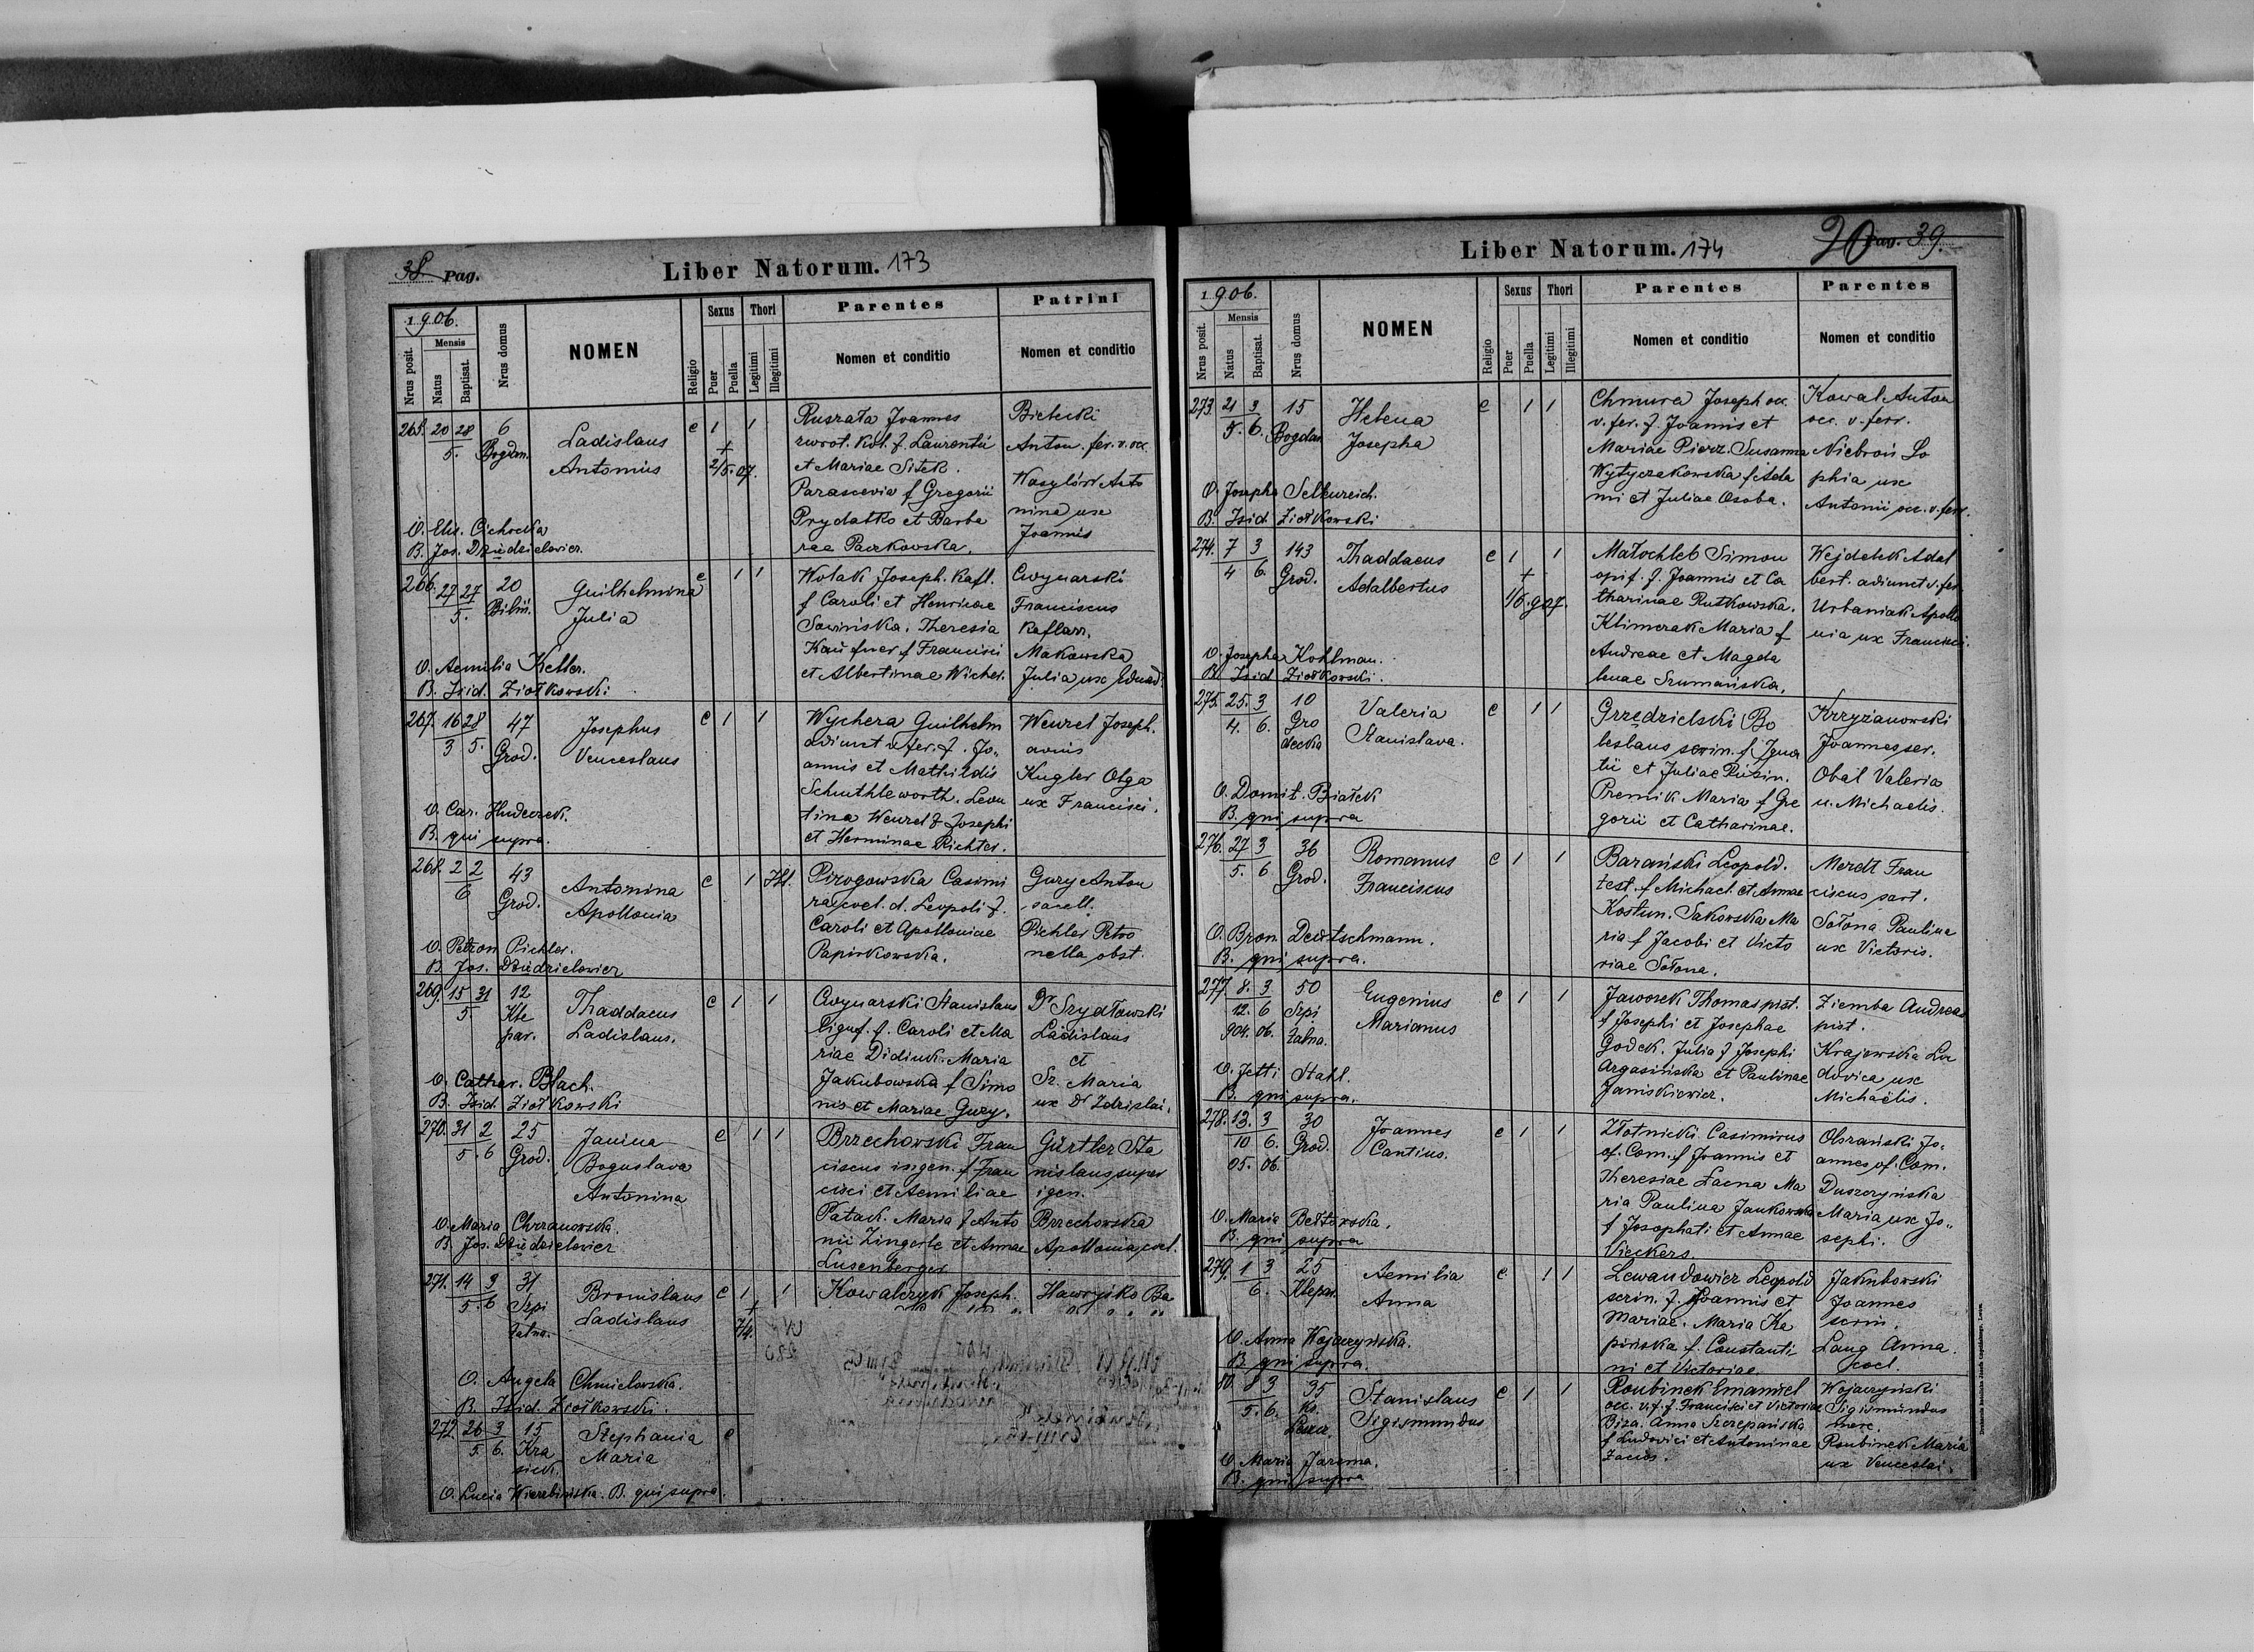 38 Pag.
Liber Natorum. 173
1906.
Nrus posit.
Mensis
Natus
Baptisat.
Nrus domus
NOMEN
Religio
Sexus
Puer
Puella
Thori
Legitimi
Illegitimi
Parentes
Nomen et conditio
Patrini
Nomen et conditio
265. 20 28 6
5. Bogdan.
Ladislaus
Antonius
c 1 1
+
2/5.07.
Ruszała Joannes
et Mariae Sitek.
Parascevia f Gregorii
Prydatko et Barba
rae Paczkowska.
Bielecki
Anton. fer. v. occ.
Wasylów Anto
nina ux
Joannis
O. Elis. Cichocka
B. Jos. Dziedzielewicz.
266. 27 27 20
5. Bilin.
Guilhelmina
Julia
c 1 1
Wolak Joseph. kafl.
f Caroli et Henricae
Sawińska. Theresia
Kaufner f Francisci
et Albertinae Wicher.
Cwynarski
Franciscus
kaflarz.
Makowska
Julia ux Eduard.
O. Aemilia Keller.
B. Isid. Ziołkowski
267. 16 28 47
3 5. Grod.
Josephus
Venceslaus
c 1 1
Wychera Guilhelm
adiunct v. fer. f. Jo„
annis et Mathildis
Schuthleworth. Leon
tina Wenzel f Josephi
et Herminae Richter.
Wenzel Joseph.
Kugler Olga
ux Francisci.
O. Car. Hudeczek.
B. qui supra.
268. 2 2 43
6 Grod.
Antonina
Apollonia
c 1 Ill.
Pirogowska Casimi
ra coel. d. Leopoli f.
Caroli et Apolloniae
Papirkowska.
Gury Anton
sacell.
Pichler Petro
nella obst.
O. Petron Pichler.
B. Jos. Dziedzielewicz
269. 15 31 12
5. Kle
par.
Thaddaeus
Ladislaus.
c 1 1
Cwynarski Stanislaus
lignf. f. Caroli et Ma
riae Didiuk. Maria
Jakubowska f Simo
nis et Mariae Gury.
Dr Szydłowski
Ladislaus
et
Sz. Maria
ux Dr Zdzislai.
O. Cathar. Blach.
B. Isid. Ziołkowski
270. 31 2 25
5. 6 Grod.
Janina
Boguslava
Antonina
c 1 1
Brzechowski Fran
ciscus ingen. f Fran
cisci et Aemiliae
Patack. Maria f Anto
nii Zingerle et Annae
Lusenberger
Gürtler Sta
nislaus super
igen.
Brzechowska
Apollonia coel.
O. Maria Chrzanowska.
B. Jos. Dziedzielewicz
271. 14 3 31
5. 6 Szpi
talna.
Bronislaus
Ladislaus
c 1 1
+
7/4.
Kowalczyk Joseph.
Hawryśko Ba
O. Angela Chmielowska.
B. Isid. Ziołkowski.
272. 26 3 15
5 6. Kra
sick.
Stephania
Maria
c
O. Lucia Wierzbińska. B. qui supra.
20 Pag. 39.
Liber Natorum. 174
1906.
Nrus posit.
Mensis
Natus
Baptisat.
Nrus domus
NOMEN
Religio
Sexus
Puer
Puella
Thori
Legitimi
Illegitimi
Parentes
Nomen et conditio
Parentes
Nomen et conditio
273. 21 3 15
5. 6. Bogdan.
Helena
Josepha
c 1 1
Chmura Joseph occ.
v. fer. f Joannis et
Mariae Pierz. Susanna
Wytyczakowska f Ada
mi et Juliae Osoba.
Kowal Anton
occ. v. ferr.
Niebroń So
phia ux
Antonii occ. v. ferr.
O. Josepha Selkureich.
B. Isid. Ziołkowski
274. 7 3 143
4 6. Grod.
Thaddaeus
Adalbertus
c 1 1
+
1/6.907.
Małochleb Simon
opif. f. Joannis et Ca
tharinae Rutkowska.
Klimczak Maria f
Andreae et Magda
lenae Szumańska.
Wejdelek Adal
bert. adiunct v. fer.
Urbaniak Apollo
nia ux Francisci.
O. Josepha Kohlman.
B. Isid. Ziołkowski.
275. 25. 3 10
4. 6. Gro
decka
Valeria
Stanislava.
c 1 1
Grzędzielski Bo
leslaus scrin. f Igna
tii et Juliae
Premik Maria f Gre
gorii et Catharinae.
Krzyżanowski
Joannes ser.
Obal Valeria
u. Michaelis.
O. Domit. Białek
B. qui supra
276. 27 3 36
5. 6 Grod.
Romanus
Franciscus
c 1 1
Barański Leopold.
test. f Michael. et Annae
Kostun. Sakowska Ma
ria f Jacobi et Victo
riae Sołona.
Merdt Fran
ciscus sart.
Sołona Paulina
ux Victoris.
O. Bron. Deutschmann.
B. qui supra.
277. 8. 3 50
12. 6 Szpi
904. 06. talna.
Eugenius
Marianus
c 1 1
Jaworek Thomas pist.
f Josephi et Josephae
Godek. Julia f Josephi
Argasińska et Paulinae
Janiskiewicz.
Ziemba Andreas
pist.
Krajewska Lu
dovica ux
Michaelis.
O. Jetti Stahl.
B. qui supra.
278. 13. 3 30
10 6. Grod.
05. 06.
Joannes
Cantius.
c 1 1
Złotnicki Casimirus
of. Com. f Joannis et
Theresiae Laena Ma
ria Paulina Jankowska
f Josaphati et Annae
Vieckers.
Obrański Jo„
annes of. Com.
Duszczyńska
Maria ux Jo„
sephi.
O. Maria Bełtowska.
B. qui supra
279. 1 3 25
6. Klepar.
Aemilia
Anna
c 1 1
Lewandowicz Leopold
scrin. f. Joannis et
Mariae. Maria Ke
pińska f. Constanti
ni et Victoriae.
Jakubowski
Joannes
scrin.
Lang Anna.
coel.
O. Anna Wojaczyńska.
B. qui supra.
80. 8 3 35
5. 6. Ko.
Leszcz.
Stanislaus
Sigismundus
c 1 1
Roubinek Emanuel
occ. v. f. f Francisci et Victoriae
Biza. Anna Szczepańska
f Ludovici et Antoninae
Zacios.
Wojaczyński
Sigismundus
merc.
Roubinek Maria
ux Venceslai.
O. Maria Jarema.
B. qui supra